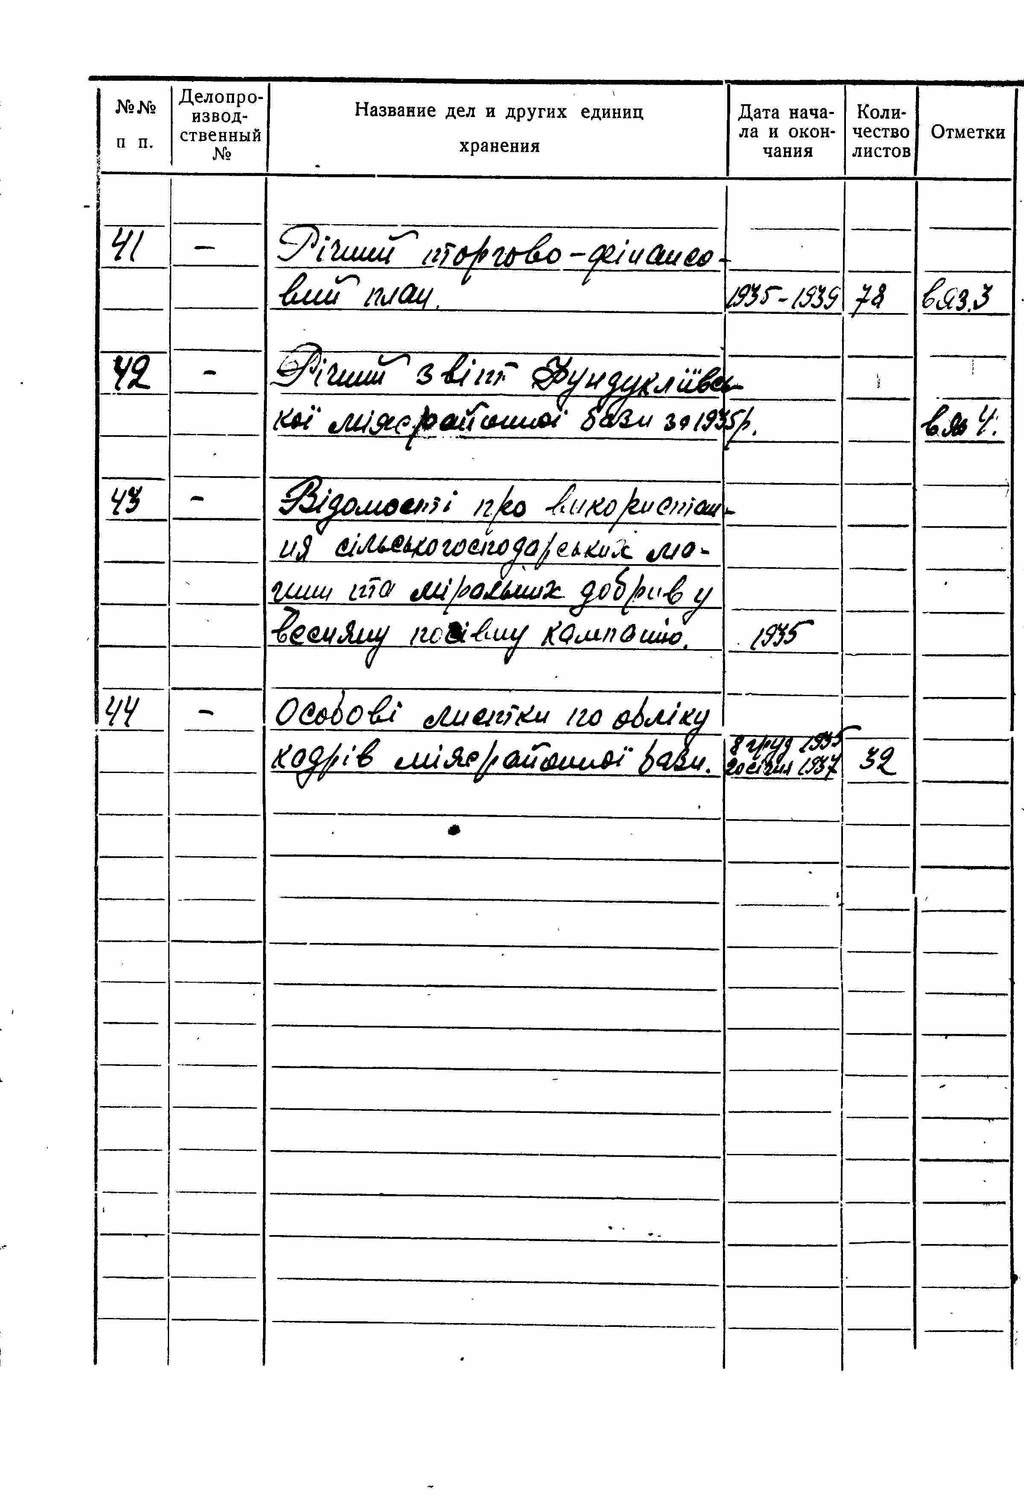 №№ п п.
Делопро-
извод-
ственный
№
Название дел и других единиц
хранения
Дата нача-
ла и окон-
чания
Коли-
чество
листов
Отметки
41 – Річний торгово-фінансо-
вий план. 1935-1939 78 вяз.3
42 – Річний звіт Фундукліївсь-
кої міжрайонної бази за 1935р. вяз 4.
43 – Відомості про використан-
ня сільськогосподарських ма-
шин та міральних добрив у
весняну посівну кампанію. 1935
44 – Особові листки по обліку
кадрів міжрайонної бази. 8 груд 1935
20 січня 1937 32